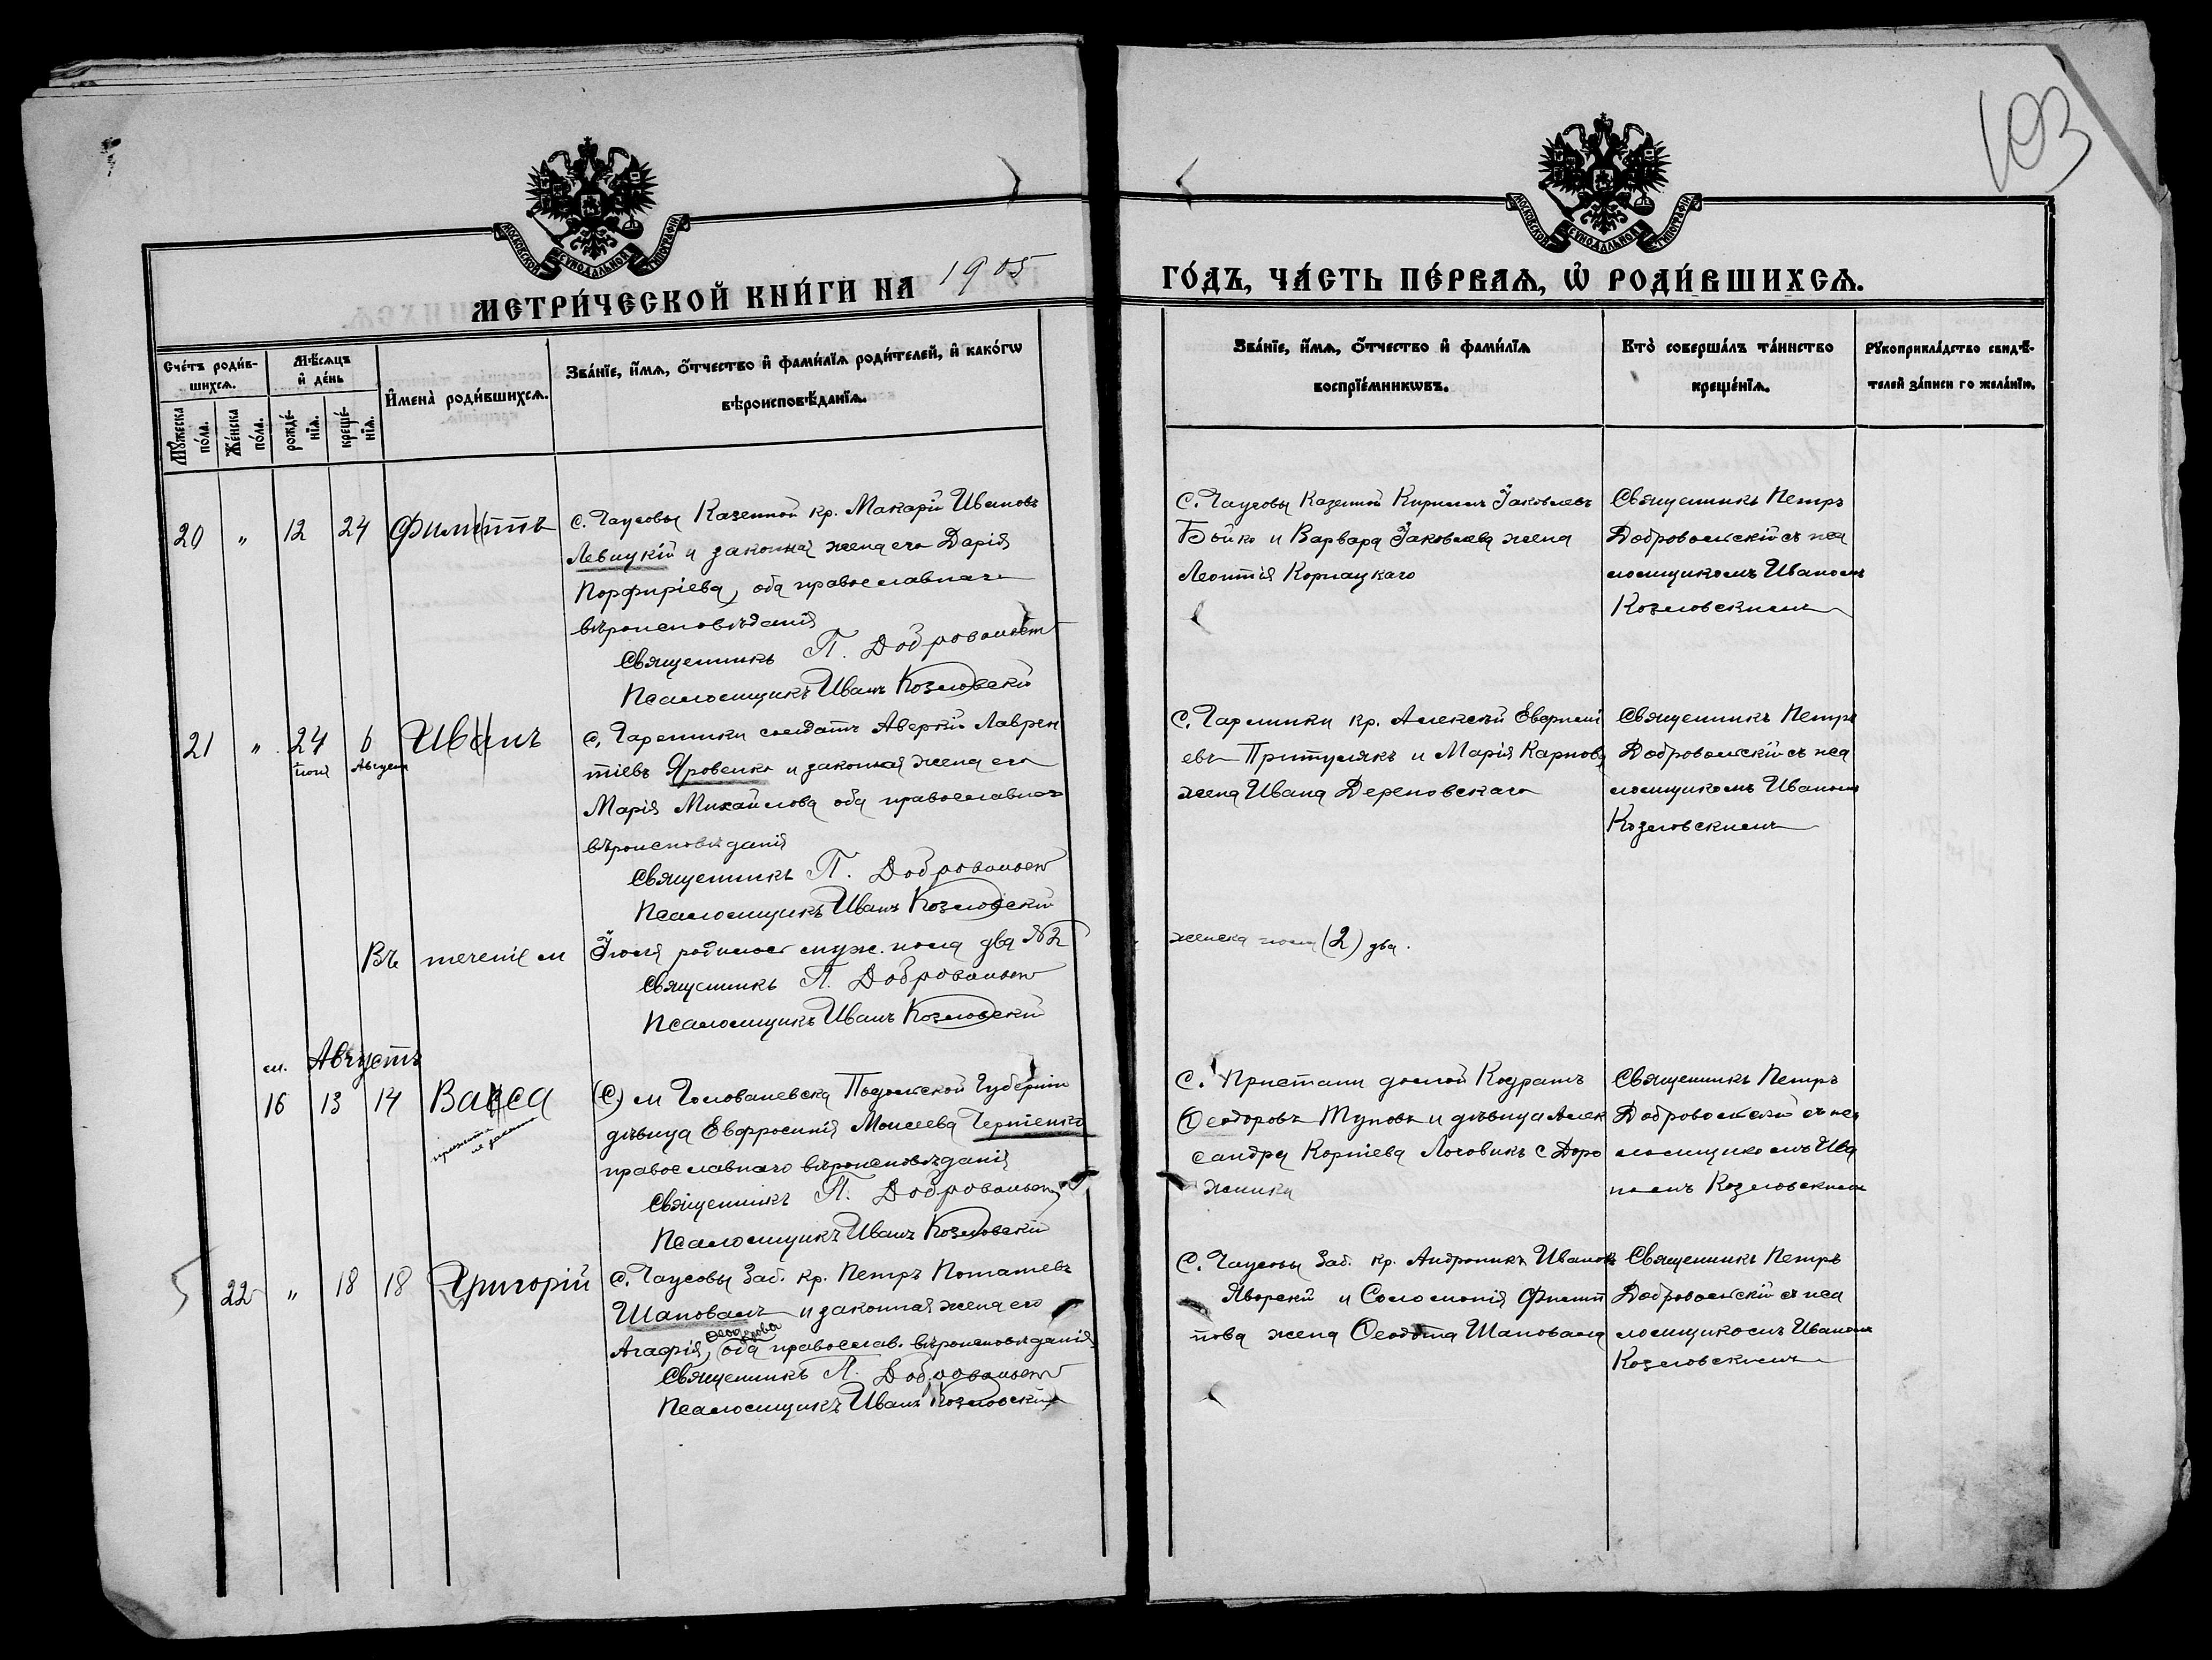 103
МОСКОВСКОЙ СѴНОДАЛЬНОЙ ТИПОГРАФІИ
МОСКОВСКОЙ СѴНОДАЛЬНОЙ ТИПОГРАФІИ
МЕТРИ́ЧЕСКОЙ КНИ́ГИ НА 1905
ГО́ДЪ, ЧА́СТЬ ПЕ́РВАѦ, Ѽ РОДИ́ВШИХСѦ.
Сче́тъ роди́в-
шихсѧ.
Мꙋ́жеска по́ла.
Же́нска по́ла.
Мѣ́сѧцъ
и҆ де́нь
рожде́-
нїѧ.
креще́-
нїѧ.
И҆мена̀ роди́вшихсѧ.
Зва́нїе, и҆́мѧ, ѻ҆́тчество и҆ фами́лїѧ роди́телей, и҆ како́гѡ
вѣроисповѣ́данїѧ.
Зва́нїе, и҆́мѧ, ѻ҆́тчество и҆ фами́лїѧ
воспрїе́мникѡвъ.
Кто̀ соверша́лъ та́инство
креще́нїѧ.
Рꙋкоприкла́дство свидѣ́-
телей за́писи по жела́нїю.
20 " 12 24 Филиппъ
с. Чаусовы Казенной кр. Макарій Ивановъ
Левицкій и законная жена его Дарія
Порфиріева, оба православнаго
вѣроисповѣданія
Священникъ П. Добровольск
Псаломщикъ Иванъ Козловскій
С. Чаусовы Казенной Кириллъ Іаковлевъ
Бойко и Варвара Іаковлева жена
Леонтія Корнацкаго
Священникъ Петръ
Добровольскій съ пса
ломщикомъ Иваномъ
Козловскимъ
21 " 24 6 Иванъ
іюля Августа
с. Гарпинки солдатъ Аверкій Лаврен
тіевъ Яровенко и законная жена его
Марія Михайлова оба православнаго
вѣроисповѣданія
Священникъ П. Добровольск
Псаломщикъ Иванъ Козловскій
С. Гарпинки кр. Алексѣй Евгеніи
евъ Притулякъ и Марія Карпова
жена Ивана Дереновскаго
Священникъ Петръ
Добровольскій съ пса
ломщикомъ Иваномъ
Козловскимъ
Въ теченіе м Іюля родилось муж. пола два №2
женска пола (2) два.
Священникъ П. Добровольск
Псаломщикъ Иванъ Козловскій
м. Августъ
16 13 14 Васса
(С) м Голованевска Подольской Губерніи
дѣвица Евфросинія Моисеева Черніенко
православнаго вѣроисповѣданія
Священникъ П. Добровольск
Псаломщикъ Иванъ Козловскій
С. Пристани домой Кодратъ
Ѳеодоровъ Туповъ и дѣвица Алек
сандра Корніева Логовикъ с Доро
жинки
Священникъ Петръ
Добровольскій съ пса
ломщикомъ Ива
номъ Козловскимъ
22 " 18 18 Григорій
с. Чаусовы Заб. кр. Петръ Потапіевъ
Шаповалъ и законная жена его
Ѳеодорова
Агафія, оба православ. вѣроисповѣданія
Священникъ П. Добровольск
Псаломщикъ Иванъ Козловскій
С. Чаусовы Заб. кр. Андроникъ Ивановъ
Яворскій и Соломонія Филип
пова жена Ѳеодота Шаповала
Священникъ Петръ
Добровольскій съ пса
ломщикомъ Иваномъ
Козловскимъ